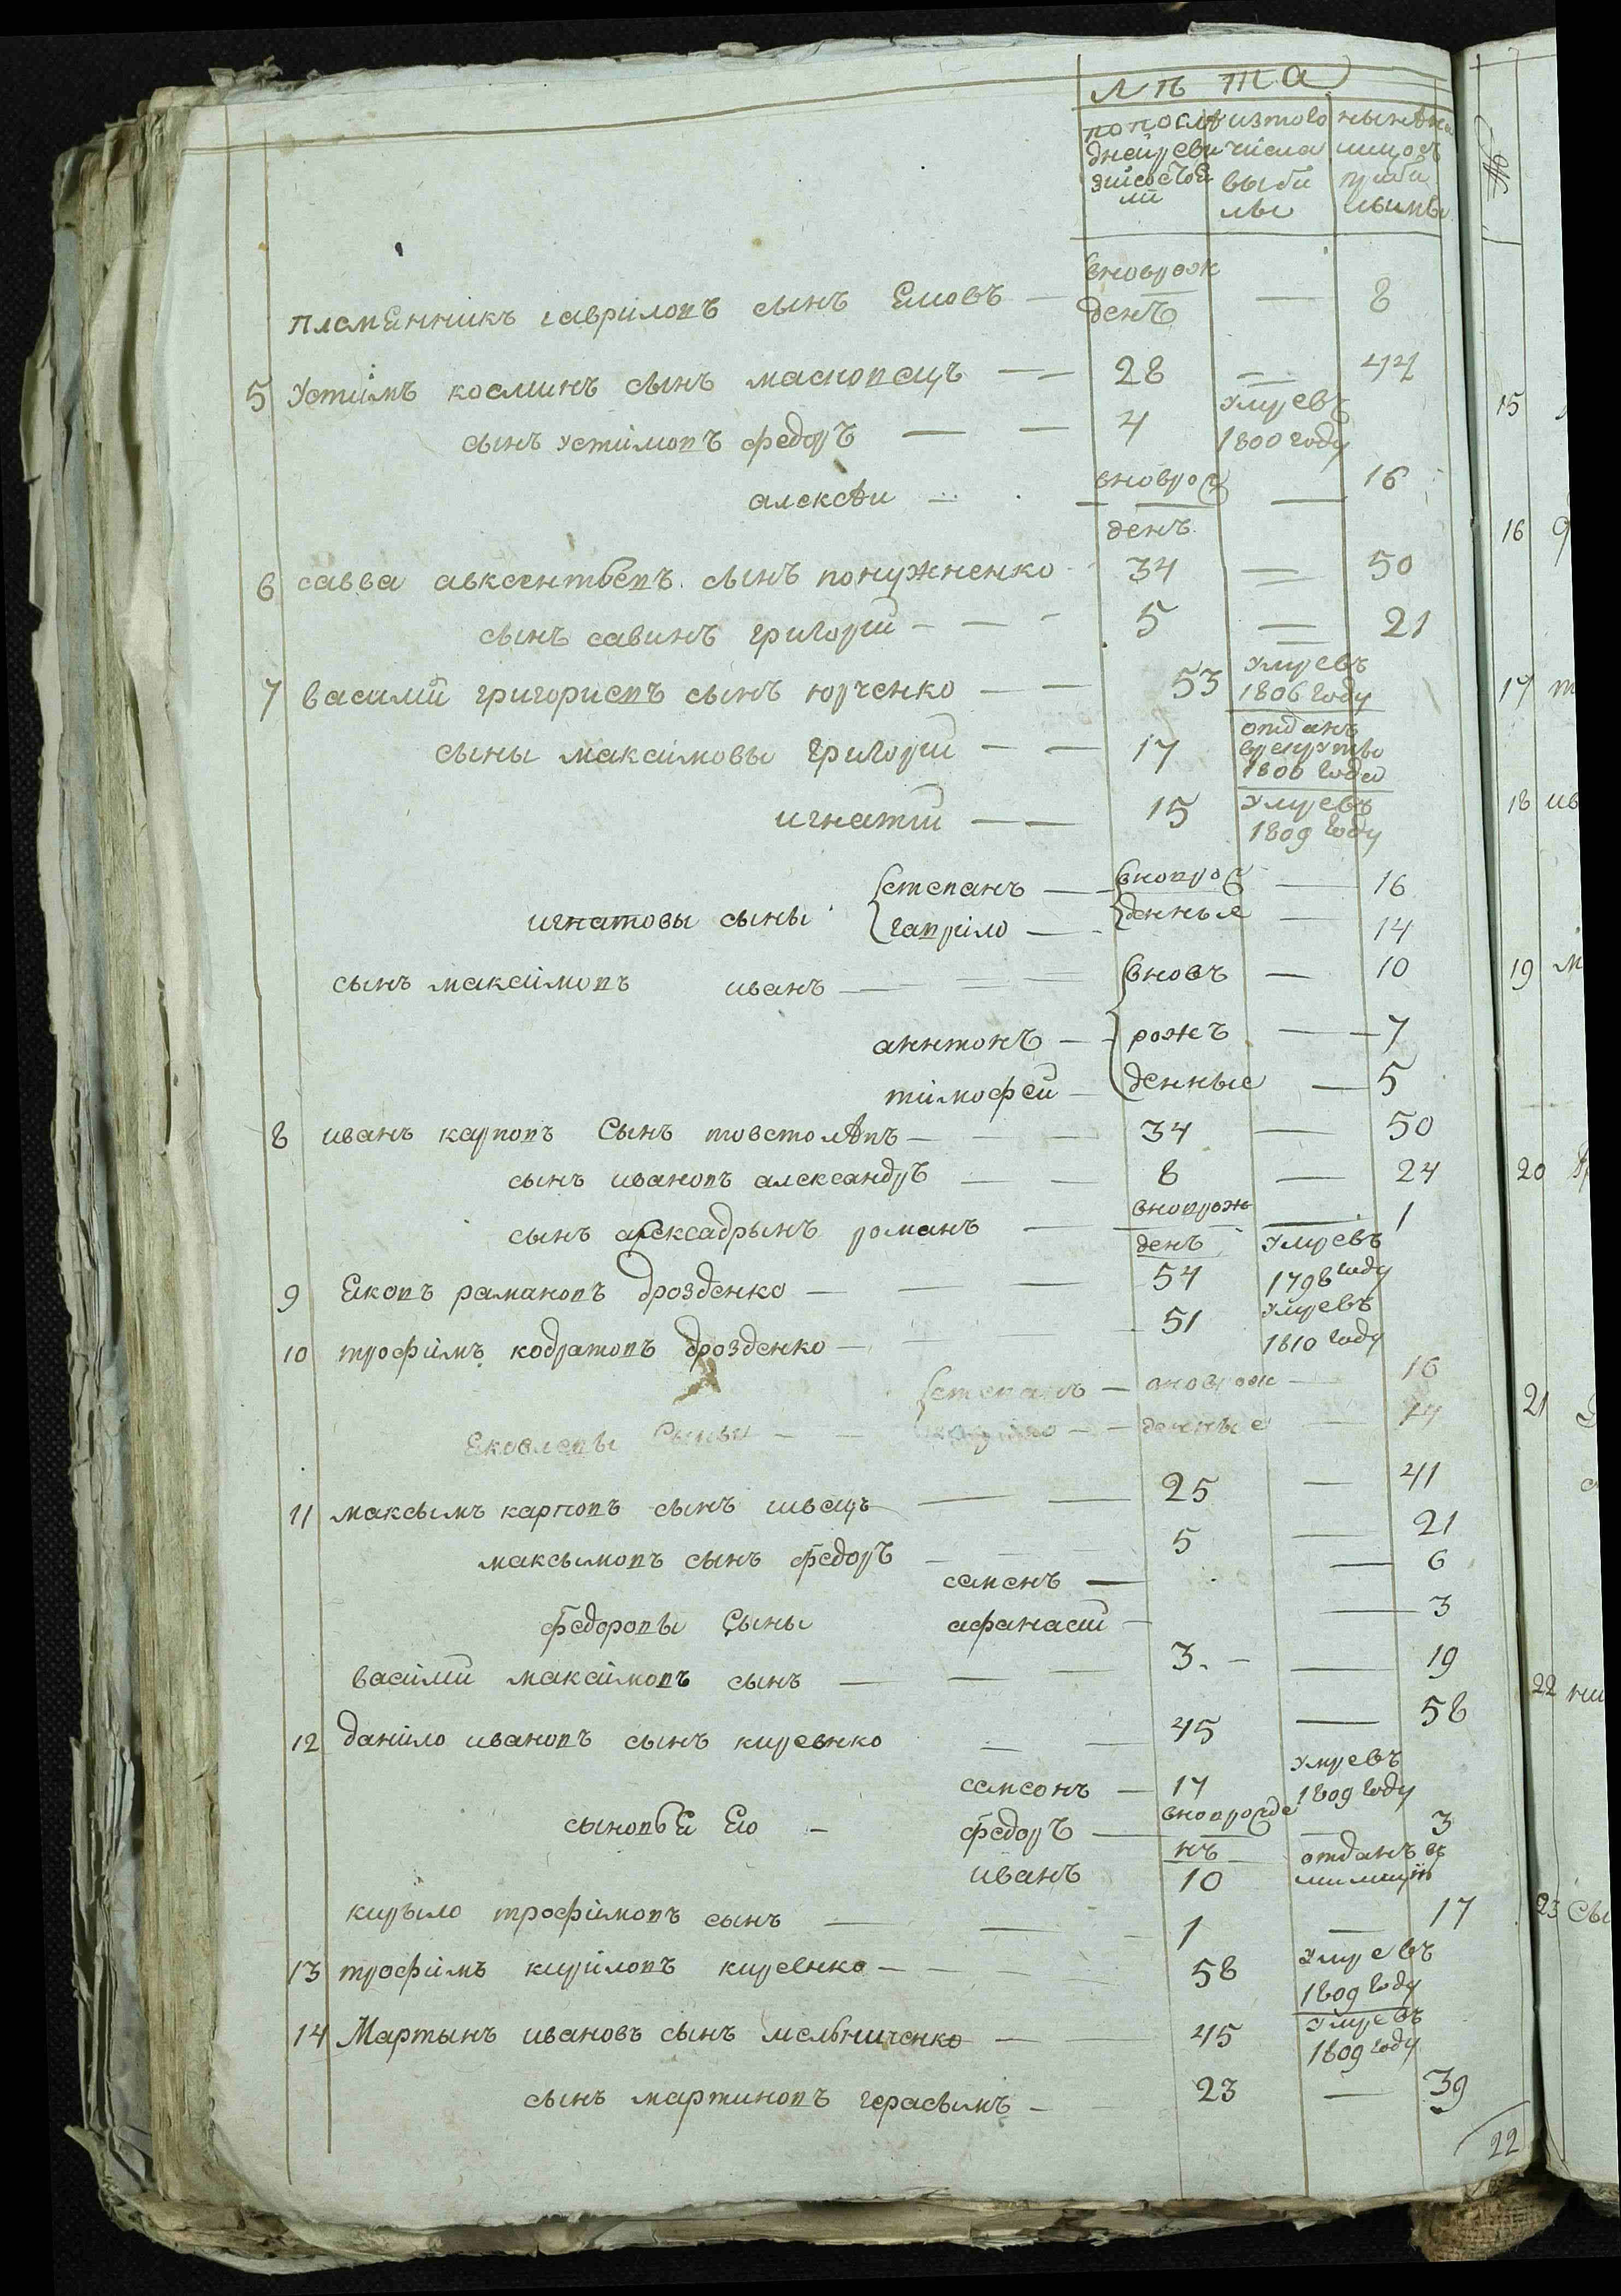 лѣта
по посл&#1123;дней ревизии состояли
изтого числа выбили
нынѣ на лицо съ прибилыми
племЕнникъ гаврiловъ сынъ Емовъ — вноврожденъ — 8
5 Устимъ косминъ сынъ маснопецъ — 28 — 44
сынъ устiмовъ федоръ — 4 умревъ 1800 году
алексѣи — вноврожденъ — 16
6 савва авксентьевъ сынъ понужненко 34 — 50
сынъ савинъ григорiй — 5 — 21
7 василiй григориевъ сынъ юрченко — 53 умревъ 1806 году
сыны максiмовы григорiй — 17 отданъ врекрутво 1806 года
игнатiй — 15 умревъ 1809 году
игнатовы сыны степанъ — вноврожденные — 16
гаврiло — 14
сынъ максiмовъ иванъ — вновъ — 10
аннтонъ — рожъ — 7
тiмофей — денные — 5
8 иванъ карповъ сынъ товстолѣпъ — 34 — 50
сынъ ивановъ александръ — 8 — 24
сынъ алексадрынъ романъ — вноврожденъ — 1
9 Екопъ рамановъ дрозденко — 54 умревъ 1798 году
10 трофiмъ кодратовъ дрозденко — 51 умревъ 1810 году
Яковлевы сыны — степанъ — вноврожденные — 16
— 14
11 максымъ карповъ сынъ швецъ — 25 — 41
максымовъ сынъ федоръ — 5 — 21
семенъ — 6
федоровы сыны афанасiй — 3
васiлiй максiмовъ сынъ — 3. — 19
12 данiло ивановъ сынъ киревнко — 45 — 58
самсонъ — 17 умревъ 1809 году
сыновьЕ Ею — федоръ — вноврожденъ — 3
иванъ 10 отданъ в милицiю
кирыло трофiмовъ сынъ — 1 — 17
13 трофiмъ кирiловъ киревнко — 58 умревъ 1809 году
14 Мартынъ ивановъ сынъ мельниченко — 45 умревъ 1809 году
сынъ мартиновъ герасымъ — 23 — 39
22
№
15
16
17
18 ив
19 м
20
21
22 ни
23 сы